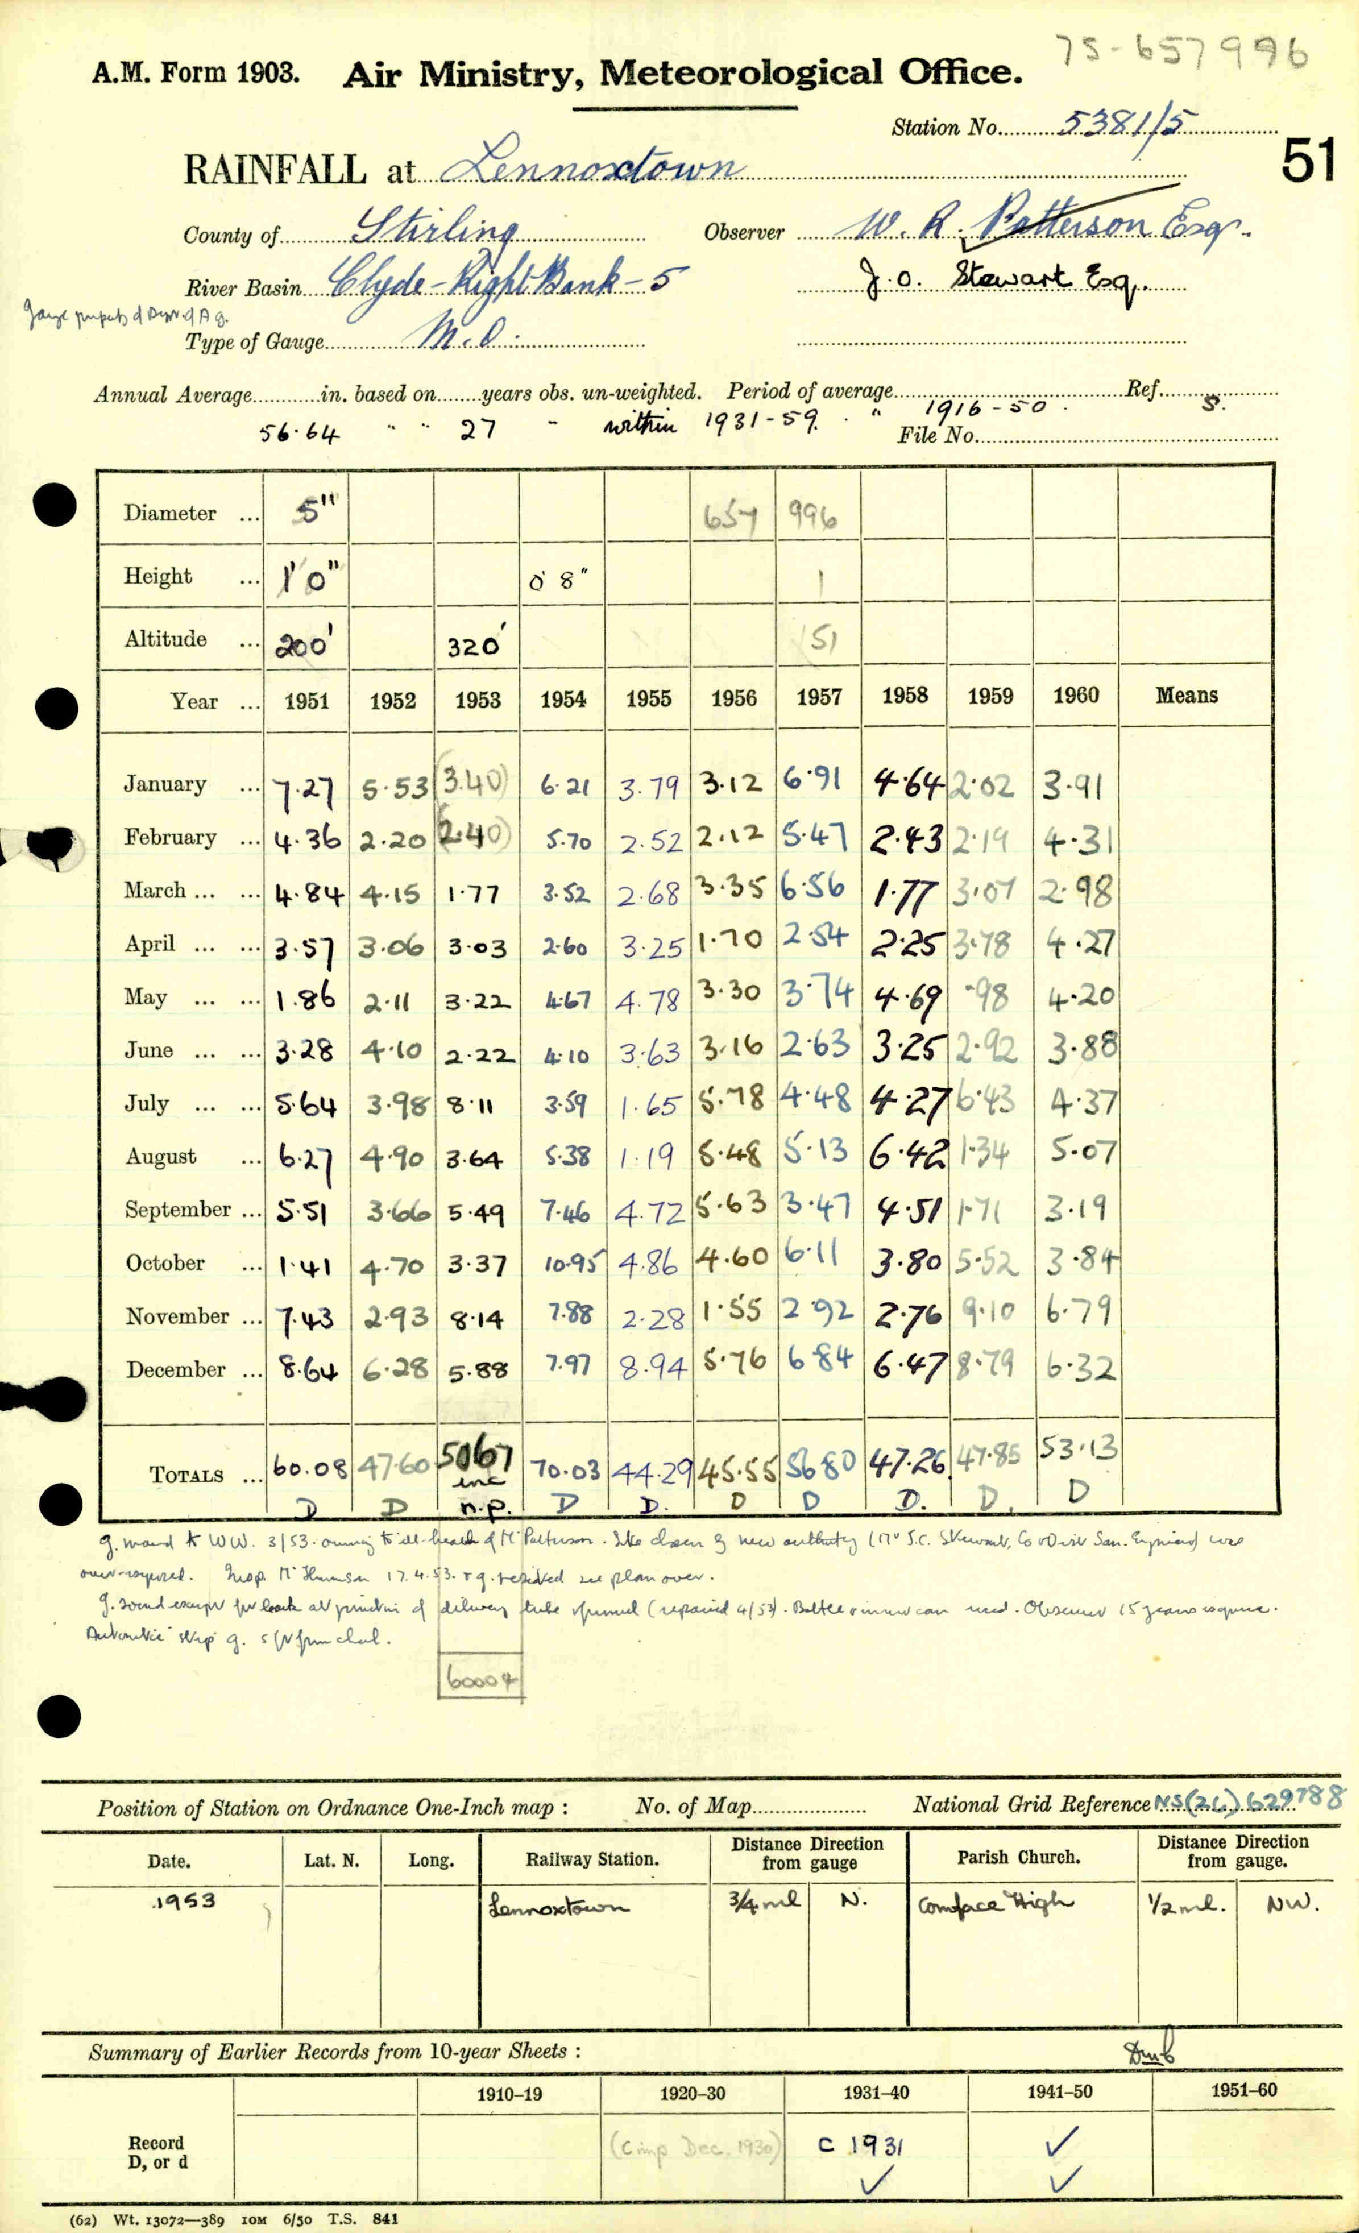 75-657996
A.M. Form 1903. Air Ministry, Meteorological Office.
Station No. 5381/5
51
RAINFALL at Lennoxtown
County of Stirling Observer W. R. Patterson Esqr.
River Basin Clyde-Right Bank-5 J.O. Stewart Esq.
Type of Gauge M.O.
Annual Average in. based on years obs. un-weighted. Period of average Ref. S.
56.64 " " 27 - within 1931-59. " 1916-50.
File No.
Diameter ... 5" 657 996
Height ... 1' 0" 0' 8" 1
Altitude ... 200' 320' 51
Year ... 1951 1952 1953 1954 1955 1956 1957 1958 1959 1960 Means
January ... 7.27 5.53 (3.40) 6.21 3.79 3.12 6.91 4.64 2.02 3.91
February ... 4.36 2.20 (2.40) 5.70 2.52 2.12 5.47 2.43 2.19 4.31
March ... ... 4.84 4.15 1.77 3.52 2.68 3.35 6.56 1.77 3.07 2.98
April ... ... 3.57 3.06 3.03 2.60 3.25 1.70 2.54 2.25 3.78 4.27
May ... ... 1.86 2.11 3.22 4.67 4.78 3.30 3.74 4.69 .98 4.20
June ... ... 3.28 4.10 2.22 4.10 3.63 3.16 2.63 3.25 2.92 3.88
July ... ... 5.64 3.98 8.11 3.59 1.65 5.78 4.48 4.27 6.43 4.37
August ... 6.27 4.90 3.64 5.38 1.19 5.48 5.13 6.42 1.34 5.07
September ... 5.51 3.66 5.49 7.46 4.72 5.63 3.47 4.51 1.71 3.19
October ... 1.41 4.70 3.37 10.95 4.86 4.60 6.11 3.80 5.52 3.84
November ... 7.43 2.93 8.14 7.88 2.28 1.55 2.92 2.76 9.10 6.79
December ... 8.64 6.28 5.88 7.97 8.94 5.76 6.84 6.47 8.79 6.32
TOTALS ... 60.08 47.60 5067 70.03 44.29 45.55 56.80 47.26 47.85 53.13
inc
D D n.p. D D. D D D. D. D
g. moved to WW. 3/53. owing to ill-health of Mr Patterson. Site chosen by new authority
17.4.53. see plan over.
g. sound except for leak at junction of delivery tube & funnel (repaired 4/53). Bottle & inner can used. Observer 15 years
60004
Position of Station on Ordnance One-Inch map : No. of Map National Grid Reference NS(26)629788
Date. Lat. N. Long. Railway Station. Distance from gauge Direction Parish Church. Distance from gauge. Direction
1953 Lennoxtown 3/4 ml N. High 1/2 ml. NW.
Summary of Earlier Records from 10-year Sheets : Dumb
1910–19 1920–30 1931–40 1941–50 1951–60
Record
D, or d
(Comp Dec. 1930) C 1931 ✓
✓ ✓
(62) Wt. 13072—389 10M 6/50 T.S. 841